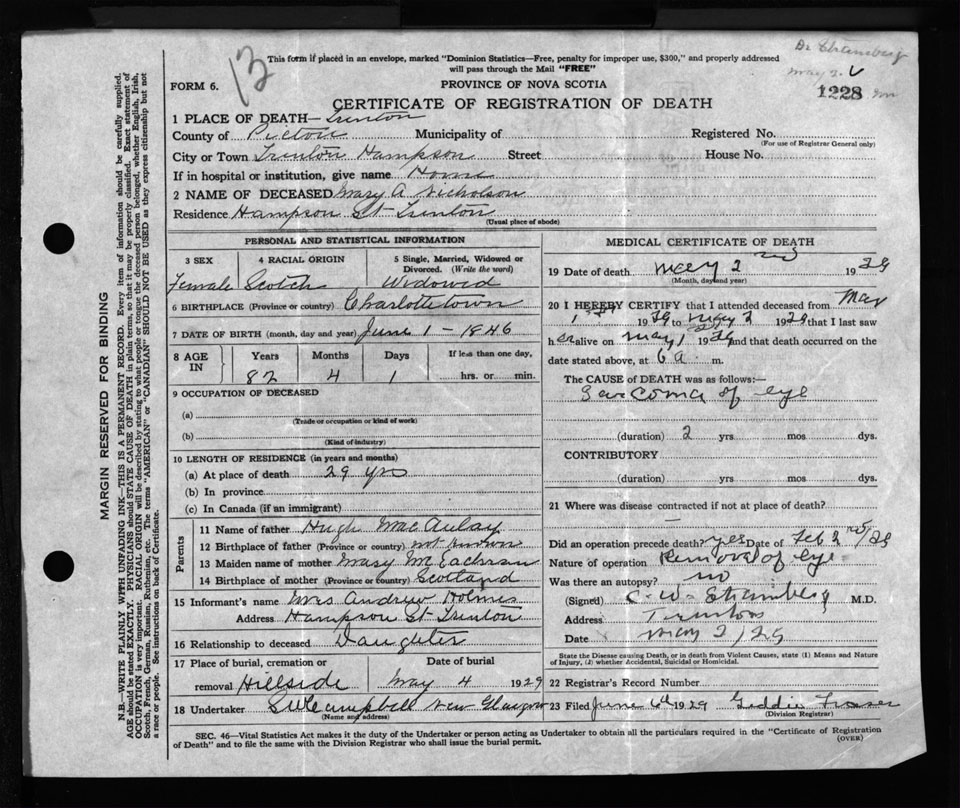 12
This form if placed in an envelope, marked "Dominion Statistics—Free, penalty for improper use, $300," and properly addressed
will pass through the Mail "FREE"
FORM 6.
PROVINCE OF NOVA SCOTIA
1228
CERTIFICATE OF REGISTRATION OF DEATH
1 PLACE OF DEATH— Trenton
County of Pictou Municipality of Registered No.
(For use of Registrar General only)
City or Town Trenton Hampson Street House No.
If in hospital or institution, give name Home
2 NAME OF DECEASED Mary A Nicholson
Residence Hampson St Trenton
(Usual place of abode)
MARGIN RESERVED FOR BINDING
N.B.—WRITE PLAINLY WITH UNFADING INK—THIS IS A PERMANENT RECORD. Every item of information should be carefully supplied.
AGE should be stated EXACTLY. PHYSICIANS should STATE CAUSE OF DEATH in plain terms, so that it may be properly classified. Exact statement of
OCCUPATION is very important. RACIAL ORIGIN will be described by stating to what people or tongue the deceased person belonged, whether English, Irish,
Scotch, French, German, Russian, Ruthenian, etc. The terms "AMERICAN" or "CANADIAN" SHOULD NOT BE USED as they express citizenship but not
a race or people. See instructions on back of Certificate.
PERSONAL AND STATISTICAL INFORMATION
3 SEX 4 RACIAL ORIGIN 5 Single, Married, Widowed or
Divorced. (Write the word)
Female Scotch Widowed
6 BIRTHPLACE (Province or country) Charlottetown
7 DATE OF BIRTH (month, day and year) June 1 - 1846
8 AGE IN Years Months Days If less than one day,
82 4 1 hrs. or min.
9 OCCUPATION OF DECEASED
(a)
(Trade or occupation or kind of work)
(b)
(Kind of industry)
10 LENGTH OF RESIDENCE (in years and months)
(a) At place of death 29 yrs
(b) In province
(c) In Canada (if an immigrant)
Parents
11 Name of father Hugh MacAulay
12 Birthplace of father (Province or country) not known
13 Maiden name of mother Mary McEachran
14 Birthplace of mother (Province or country) Scotland
15 Informant's name Mrs Andrew Holmes
Address Hampson St Trenton
16 Relationship to deceased Daughter
17 Place of burial, cremation or Date of burial
removal Hillside May 4 1929
18 Undertaker Campbell New Glasgow
(Name and address)
MEDICAL CERTIFICATE OF DEATH
19 Date of death May 2nd 1929
(Month, day and year)
20 I HEREBY CERTIFY that I attended deceased from Mar
1 1929 to May 2 1929 that I last saw
her alive on May 1 1929 and that death occurred on the
date stated above, at 6 a m.
The CAUSE of DEATH was as follows:—
Sarcoma of eye
(duration) 2 yrs mos dys.
CONTRIBUTORY
(duration) yrs mos dys.
21 Where was disease contracted if not at place of death?
Did an operation precede death? yes Date of Feb /29
Nature of operation Removal of eye
Was there an autopsy? no
(Signed) C. W. Stramberg M.D.
Address Trenton
Date May 2/29
State the Disease causing Death, or in death from Violent Causes, state (1) Means and Nature
of Injury, (2) whether Accidental, Suicidal or Homicidal.
22 Registrar's Record Number
23 Filed June 6th 1929 Geddie Fraser
(Division Registrar)
SEC. 46—Vital Statistics Act makes it the duty of the Undertaker or person acting as Undertaker to obtain all the particulars required in the "Certificate of Registration
of Death" and to file the same with the Division Registrar who shall issue the burial permit.
(OVER)